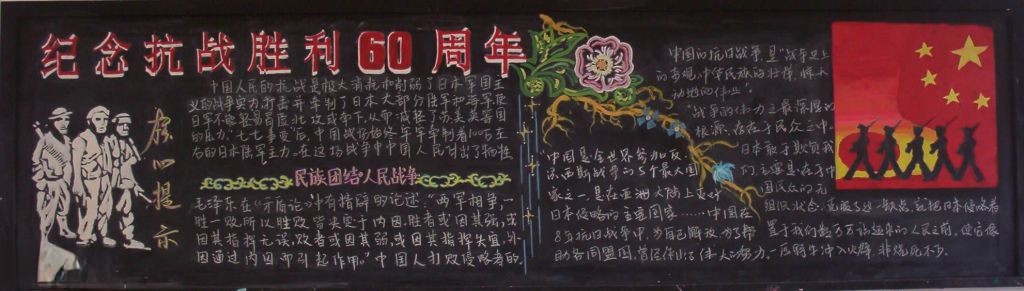 纪念抗战胜利60周年
中国人民的抗战是极大消耗和削弱了日本军国主
义的战争实力,打击并牵制了日本大部分陆军和海军使
日军不能轻易冒险北攻或南下,从而减轻了苏美英各国
的压力,"七七事变"后,中国战场始终牢牢牵制着100万左
右的日本陆军主力,在这场战争中中国人民付出了牺牲
民族团结人民战争
毛泽东在《矛盾论》中有精辟的论述,"两军相争,一
胜一败,所以胜败皆决定于内因,胜者或因其强,或
因其指挥无误,败者或因其弱,或因其指挥失宜,外
因通过内因而引起作用。"中国人打败侵略者的,
中国是全世界参加反
法西斯战争的5个最大国
家之一,是在亚洲大陆上反对
日本侵略的主要国家……中国在
8年抗日战争中,为自己解放,为了帮
助各同盟国,曾经作出了伟大的努力。
中国的抗日战争,是"战争史上
的奇观,中华民族的壮举,惊天
动地的伟业"
"战争的伟力之最深厚的
根源,存在于民众之中。
日本敢于欺负我
们,主要是在于中
国民众的无
组织状态。克服了这一缺点,就把日本侵略者
置于我们数万万站起来的人民之前,使它像
一匹野牛冲入火阵,非烧死不可